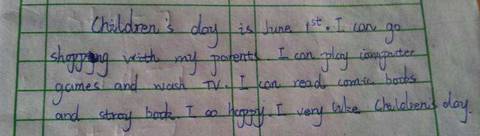 Children's day is June 1st. I can go
shopping with my parents. I can play computer
games and wash TV. I can read comic books
and stroy book. I so happy. I very like Children's day.